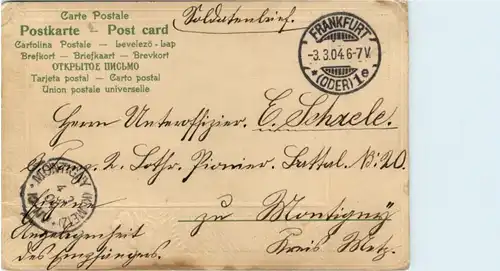 Carte Postale
Postkarte — Post card
Cartolina Postale — Levelező-Lap
Brefkort — Briefkaart — Brevkort
ОТКРЫТОЕ ПИСЬМО
Tarjeta postal — Carto postal
Union postale universelle
Soldatenbrief.
FRANKFURT
-3.3.04.6-7V.
*(ODER)1e
Herrn Unteroffizier. E. Schaele.
2. Lothr. Pionier. Battal. No: 20
MONTIGNY (KR. METZ)
Eigene
zu Montigny
Angelegenheit
Kreis Metz.
des Empfängers.